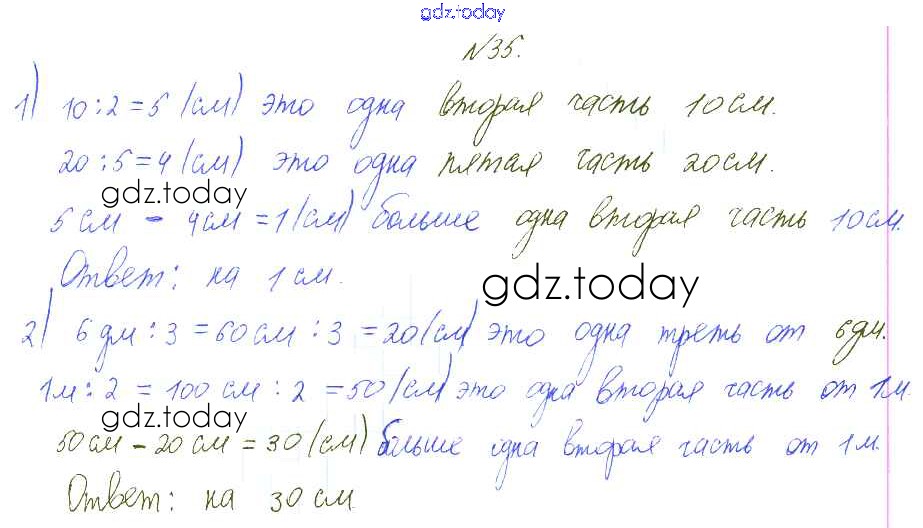 gdz.today
№35.
1) 10:2=5 (см) это одна вторая часть 10см.
20:5=4 (см) это одна пятая часть 20см.
gdz.today
5см - 4см =1(см) больше одна вторая часть 10см.
Ответ: на 1см.
gdz.today
2) 6дм:3=60см:3=20(см) это одна треть от 6дм.
1м:2=100см:2=50(см) это одна вторая часть от 1м.
gdz.today
50см-20см=30(см) больше одна вторая часть от 1м.
Ответ: на 30см